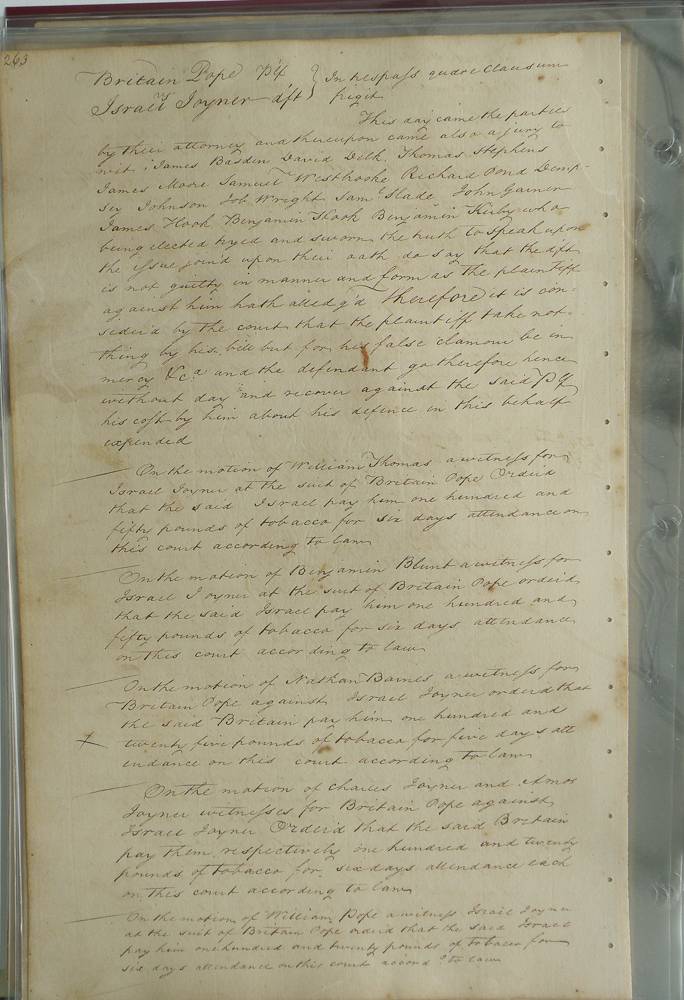 263
Britain Pope Plf } In trespass quare clausum
vs
Israel Joyner dft } frigit
This day came the parties
by their attorney and thereupon came also a jury to
wit, James Basden David Delk, Thomas Stephens
James Moore Samuel Westbrooke Richard Pond Demp-
sey Johnson Job Wright Saml Slade John Gainer
James Hook Benjamin Hook Benjamin Kirby who
being elected tryed and sworn the truth to speak upon
the issue join'd upon their oath do say that the dft
is not guilty in manner and form as the plaintiff
against him hath alledg'd Therefore it is con-
sider'd by the court that the plaintiff take not-
thing by his bill but for his false clamour be in
mercy &ca and the defendant go therefore hence
without day and recover against the said Plf
his cost by him about his defence in this behalf
expended
On the motion of William Thomas a witness for
Israel Joyner at the suit of Britain Pope Order'd
that the said Israel pay him one hundred and
fifty pounds of tobacco for six days attendance on
this court according to law
On the motion of Benjamin Blunt a witness for
Israel Joyner at the suit of Britain Pope order'd
that the said Israel pay him one hundred and
fifty pounds of tobacco for six days attendance
on this court according to law
On the motion of Nathan Barnes a witness for
Britain Pope against Israel Joyner order'd that
the said Britain pay him one hundred and
twenty five pounds of tobacco for five days att
endance on this court according to law
On the motion of Charles Joyner and Amos
Joyner witnesses for Britain Pope against
Israel Joyner Order'd that the said Britain
pay them respectively one hundred and twenty
pounds of tobacco for six days attendance each
on this court according to law
On the motion of William Pope a witness Israel Joyner
at the suit of Britain Pope order'd that the said Israel
pay him one hundred and twenty pounds of tobacco for
six days attendance on this court accordg to law